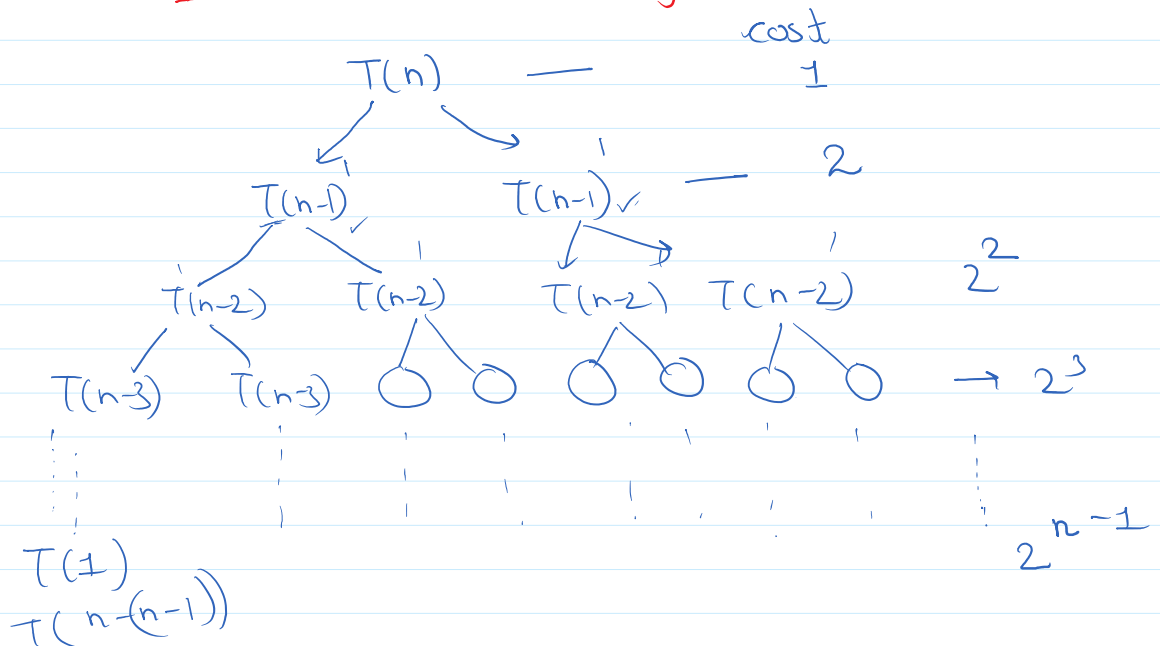 cost
T(n) — 1
T(n-1) T(n-1) — 2
T(n-2) T(n-2) T(n-2) T(n-2) 2^2
T(n-3) T(n-3) → 2^3
2^{n-1}
T(1)
T(n-(n-1))